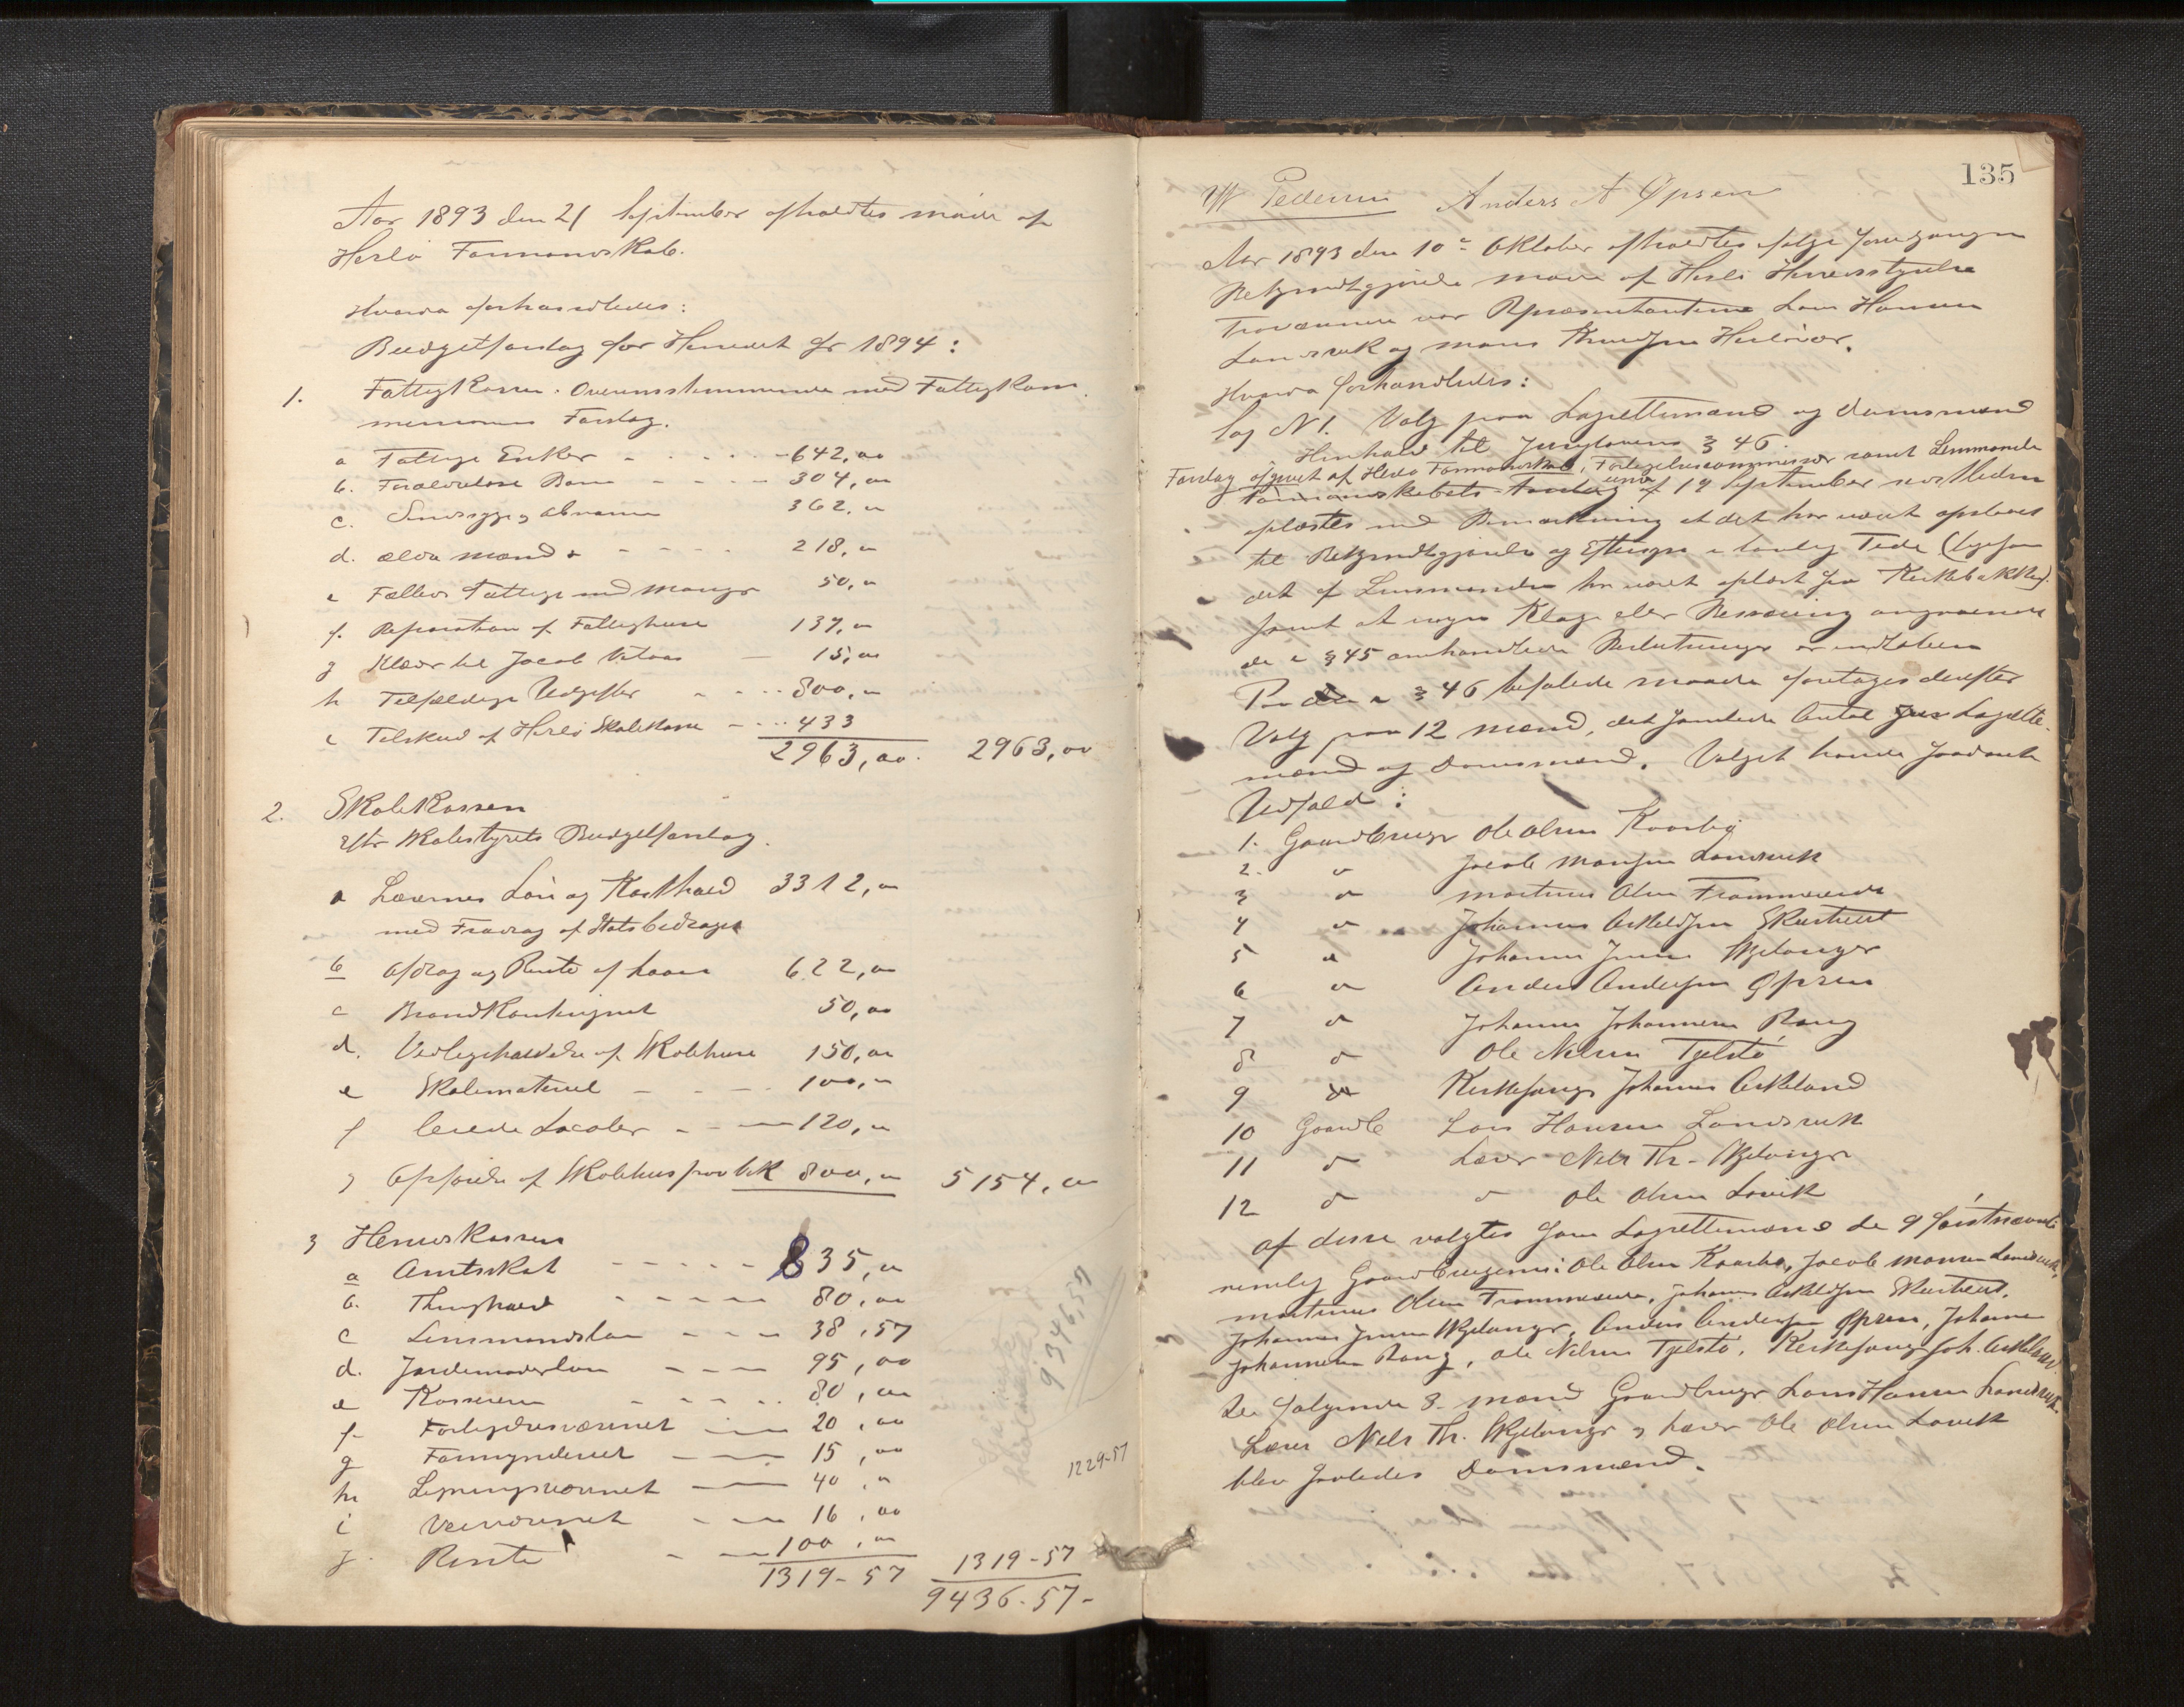 Aar 1893 den 21 September afholdtes möde af
Herlö Formandskab.
Hvorda forhandledes:
Budgetforslag for Herredet for 1894:
1. Fattigkassen. Overensstemmende med Fattigkom
missionens Forslag.
a Fattige Enker - - - - 642,00
b. Forældrelöse Börn - - - - 304,00
c. Sindssyge og abnorme 362,00
d. ældre mænd - - - - 218,00
e Fælles Fattige med Manger 50,00
f. Reparation af Fattighuse 137,00
g Klæder til Jacob 15,00
h Tilfældige Udgifter - - - 800,00
i Tilskud af Herlö Skolekasse - - - 433
2963,00. 2963,00
2. Skolekassen
Efter Skolestyrets Budgetforslag.
a Lærernes Lön og Kosthold 3312,00
med Fradrag af Statsbidraget
b Afdrag og Rente af Laan 622,00
c Brandkontingent 50,00
d. Vedligeholdelse af Skolehuse 150,00
e Skolemateriel - - - 100,00
f Leiede Localer - - - 120,00
g Opförelse af Skolehus 800,00 5154,00
3 Herredskassen
a Amtsskat - - - - - 835,00
b. Thinghold - - - - - 80,00
c Lensmandslön - - - 38,57
d. Jordemoderlön - - - 95,00
e Kasseren - - - - 80,00
f- Forligelsesvæsenet - - - 20,00
g Formynderiet - - - 15,00
h Ligningsvæsenet - - 40,00
i Veivæsenet - - - 16,00
j. Rente - - 100,00
1319-57 1319-57
9436-57-
9346,57
1229-57
135
W Pedersen Anders A Öpsen
Aar 1893 den 10de Oktober afholdtes efter foregaaende
Bekjendtgjörelse möde af Herlö Herredsstyrelse
Fraværende var Repræsentanterne Lars Hansen
Landsvik og Mons Knudsen Herlövær.
Hvorda forhandledes:
Sag N 1. Valg paa Lagrettemænd og Domsmænd
Henhold til Jurylovens § 46.
Forslag afgivet af Herlö Formandskab, Forligelseskommissær samt Lensmanden
Formandskabets Forslag af 19 September sidstleden
oplæstes med Bemærkning at det har været opslaaet
til Bekjendtgjörelse og Eftersyn i lovlig Tid (ligesom
det af Lensmanden har været oplæst fra Kirkebakken).
samt at ingen Klage eller Besværing angaaende
de i § 45 omhandlede Beslutninger er indkommen
Paa den i § 46 befalede Maade foretages derefter
Valg paa 12 mænd, det samlede Antal Lagrette-
mænd og Domsmænd. Valget havde saadant
Udfald:
1. Gaardbruger Ole Olsen Kaarbö
2. " Jacob Monsen Landsvik
3 " Martinus Olsen Trommereide
4 " Johannes Askeldsen Skurtveit
5 " Johannes Jensen Mjelanger
6 " Anders Andersen Öpsen
7 " Johannes Johannesen Rong
8 " Ole Nilsen Tjelstö
9 Kirkesanger Johannes Askeland
10 Gaardb Lars Hansen Landsvik
11 " Lærer Nils Th. Mjelanger
12 " " Ole Olsen Lövik
Af disse valgtes som Lagrettemænd de 9 förstnævnte
nemlig Gaardbrugerne: Ole Olsen Kaarbö, Jacob Monsen Landsvik,
Martinus Olsen Trommereide, Johannes Askeldsen Skurtveit,
Johannes Jensen Mjelanger, Anders Andersen Öpsen, Johannes
Johannesen Rong, Ole Nilsen Tjelstö, Kirkesanger Joh. Askeland
De fölgende 3 mænd Gaardbruger Lars Hansen Landsvik
Lærer Nils Th. Mjelanger og Lærer Ole Olsen Lövik
blev saaledes Domsmænd.